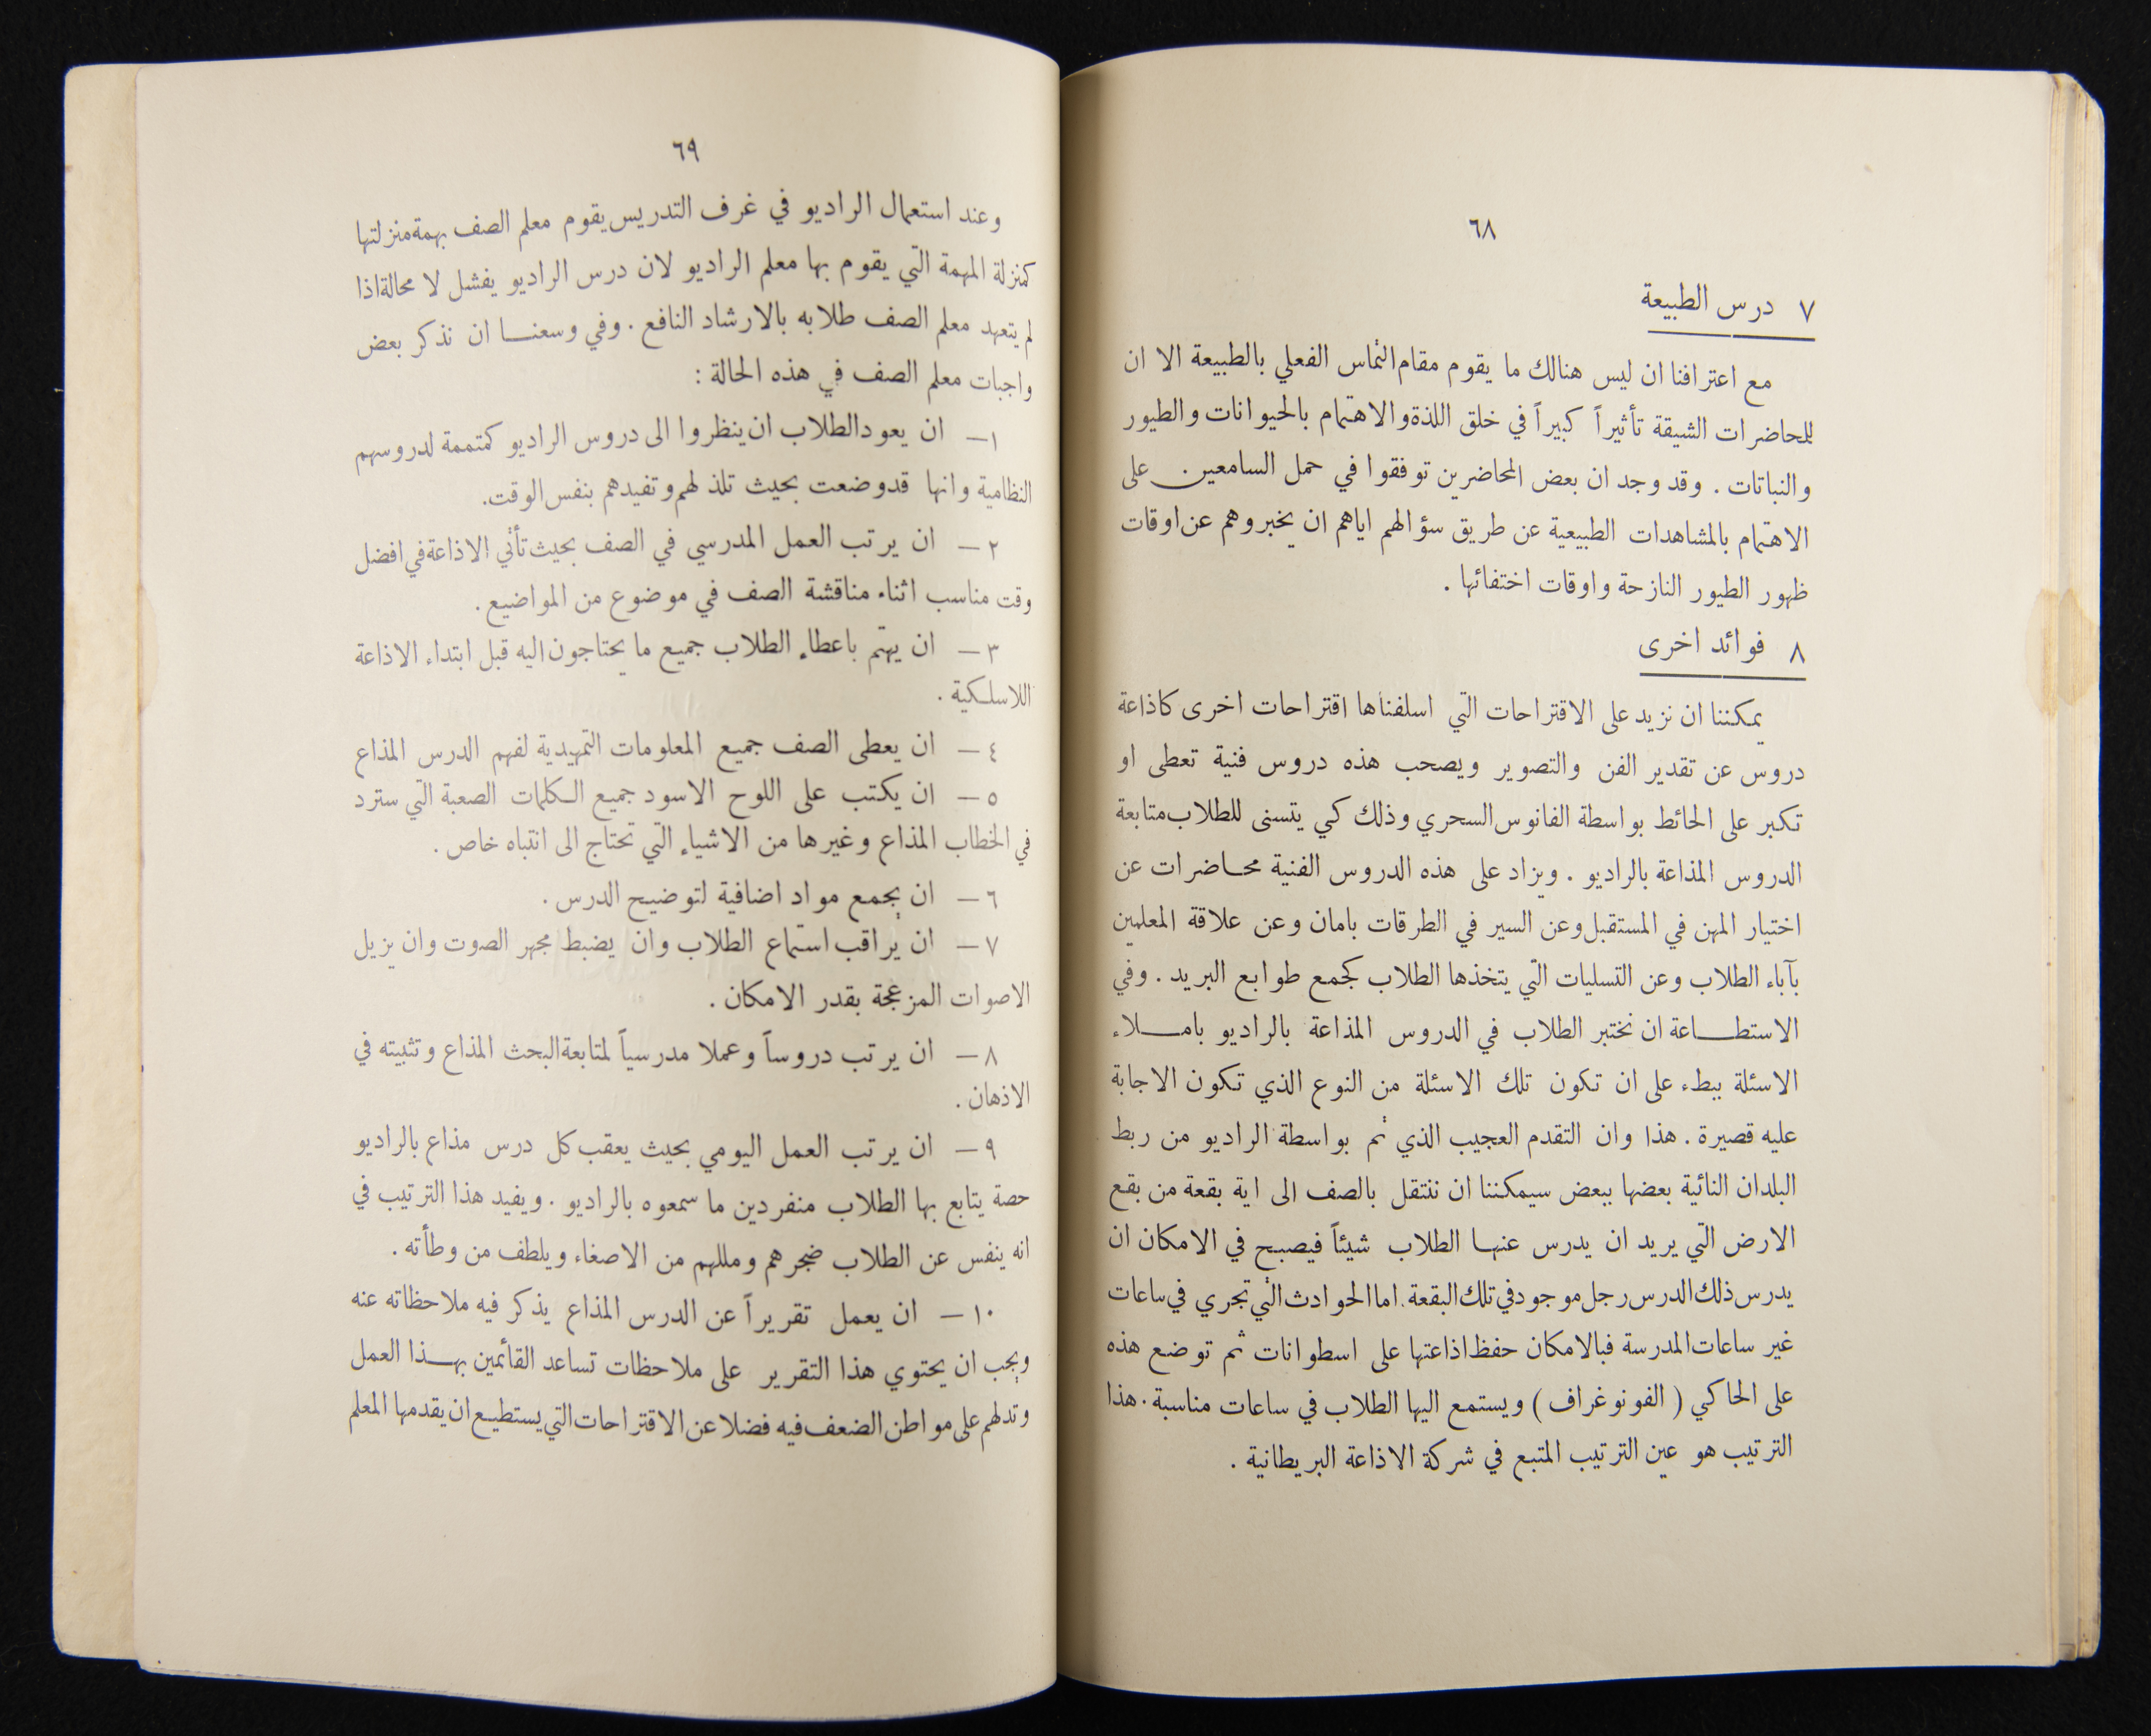 ٦٨
٧ درس الطبيعة
مع اعترافنا ان ليس هنالك ما يقوم مقام التماس الفعلي بالطبيعة الا ان
للمحاضرات الشيقة تأثيراً كبيراً في خلق اللذة والاهتمام بالحيوانات والطيور
والنباتات . وقد وجد ان بعض المحاضرين توفقوا في حمل السامعين . على
الاهتمام بالمشاهدات الطبيعية عن طريق سؤالهم اياهم ان يخبروهم عن اوقات
ظهور الطيور النازحة واوقات اختفائها .
٨ فوائد اخرى
يمكننا ان نزيد على الاقتراحات التي اسلفناها اقتراحات اخرى كاذاعة
دروس عن تقدير الفن والتصوير ويصحب هذه دروس فنية تعطى او
تكبر على الحائط بواسطة الفانوس السحري وذلك كي يتسنى للطلاب متابعة
الدروس المذاعة بالراديو . ويزاد على هذه الدروس الفنية محاضرات عن
اختيار المهن في المستقبل وعن السير في الطرقات بامان وعن علاقة المعلمين
بآباء الطلاب وعن التسليات التي يتخذها الطلاب كجمع طوابع البريد . وفي
الاستطاعة ان نختبر الطلاب في الدروس المذاعة بالراديو باملاء
الاسئلة ببطء على ان تكون تلك الاسئلة من النوع الذي تكون الاجابة
عليه قصيرة . هذا وان التقدم العجيب الذي تم بواسطة الراديو من ربط
البلدان النائية بعضها ببعض سيمكننا ان ننتقل بالصف الى اية بقعة من بقع
الارض التي يريد ان يدرس عنها الطلاب شيئاً فيصبح في الامكان ان
يدرس ذلك الدرس رجل موجود في تلك البقعة . اما الحوادث التي تجري في ساعات
غير ساعات المدرسة فبالامكان حفظ اذاعتها على اسطوانات ثم توضع هذه
على الحاكي ( الفونوغراف ) ويستمع اليها الطلاب في ساعات مناسبة . هذا
الترتيب هو عين الترتيب المتبع في شركة الاذاعة البريطانية .
٦٩
وعند استعمال الراديو في غرف التدريس يقوم معلم الصف بهمة منزلتها
كمنزلة المهمة التي يقوم بها معلم الراديو لان درس الراديو يفشل لا محالة اذا
لم يتعهد معلم الصف طلابه بالارشاد النافع . وفي وسعنا ان نذكر بعض
واجبات معلم الصف في هذه الحالة :
١ – ان يعود الطلاب ان ينظروا الى دروس الراديو كمتممة لدروسهم
النظامية وانها قد وضعت بحيث تلذ لهم وتفيدهم بنفس الوقت .
٢ – ان يرتب العمل المدرسي في الصف بحيث تأتي الاذاعة في افضل
وقت مناسب اثناء مناقشة الصف في موضوع من المواضيع .
٣ – ان يهتم باعطاء الطلاب جميع ما يحتاجون اليه قبل ابتداء الاذاعة
اللاسلكية .
٤ – ان يعطى الصف جميع المعلومات التمهيدية لفهم الدرس المذاع
٥ – ان يكتب على اللوح الاسود جميع الكلمات الصعبة التي سترد
في الخطاب المذاع وغيرها من الاشياء التي تحتاج الى انتباه خاص .
٦ – ان يجمع مواد اضافية لتوضيح الدرس .
٧ – ان يراقب استماع الطلاب وان يضبط مجهر الصوت وان يزيل
الاصوات المزعجة بقدر الامكان .
٨ – ان يرتب دروساً وعملا مدرسياً لمتابعة البحث المذاع وتثبيته في
الاذهان .
٩ – ان يرتب العمل اليومي بحيث يعقب كل درس مذاع بالراديو
حصة يتابع بها الطلاب منفردين ما سمعوه بالراديو . ويفيد هذا الترتيب في
انه ينفس عن الطلاب ضجرهم ومللهم من الاصغاء ويلطف من وطأته .
١٠ – ان يعمل تقريراً عن الدرس المذاع يذكر فيه ملاحظاته عنه
ويجب ان يحتوي هذا التقرير على ملاحظات تساعد القائمين بهذا العمل
وتدلهم على مواطن الضعف فيه فضلا عن الاقتراحات التي يستطيع ان يقدمها المعلم